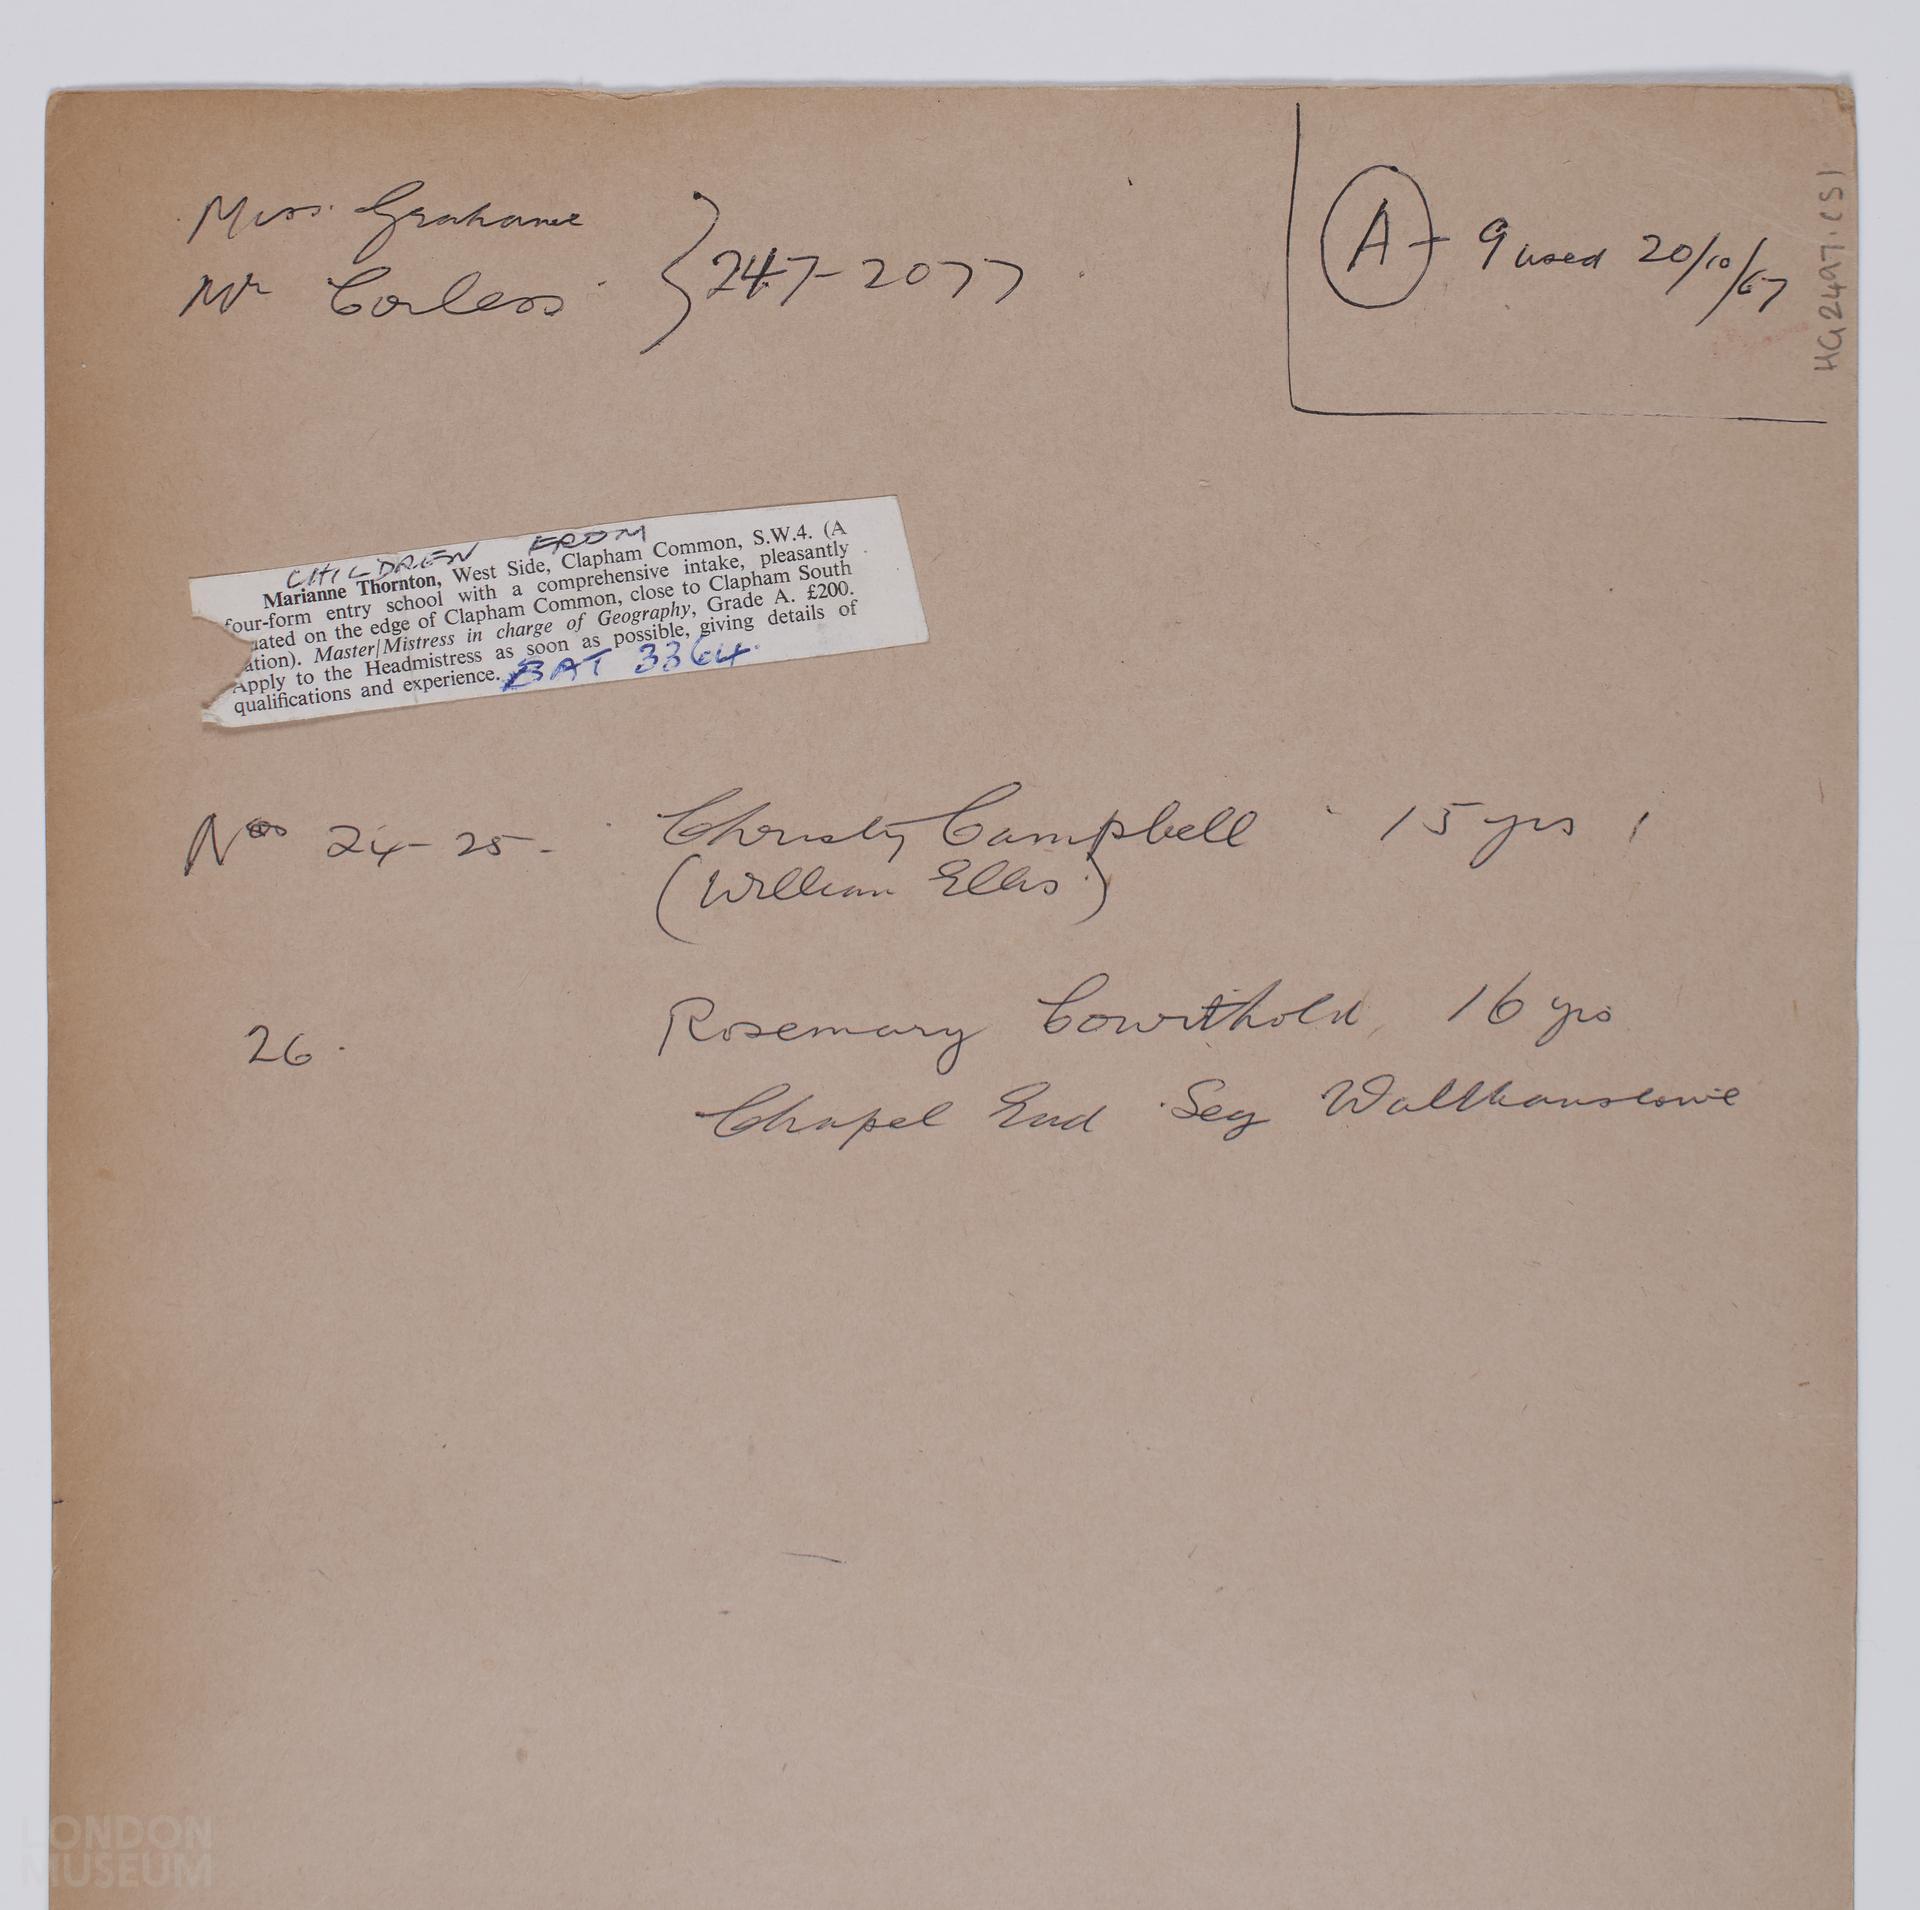 Miss Grahame
Mr Corless } 247-2077
A - 9 used 20/10/67
HG2497.(S)
CHILDREN FROM
Marianne Thornton, West Side, Clapham Common, S.W.4. (A
four-form entry school with a comprehensive intake, pleasantly
uated on the edge of Clapham Common, close to Clapham South
ation). Master/Mistress in charge of Geography, Grade A. £200.
Apply to the Headmistress as soon as possible, giving details of
qualifications and experience. BAT 3364.
Nos 24-25- Christy Campbell 15 yrs
(William Ellis)
26. Rosemary 16 yrs
Chapel End Walthamstowe
LONDON
MUSEUM